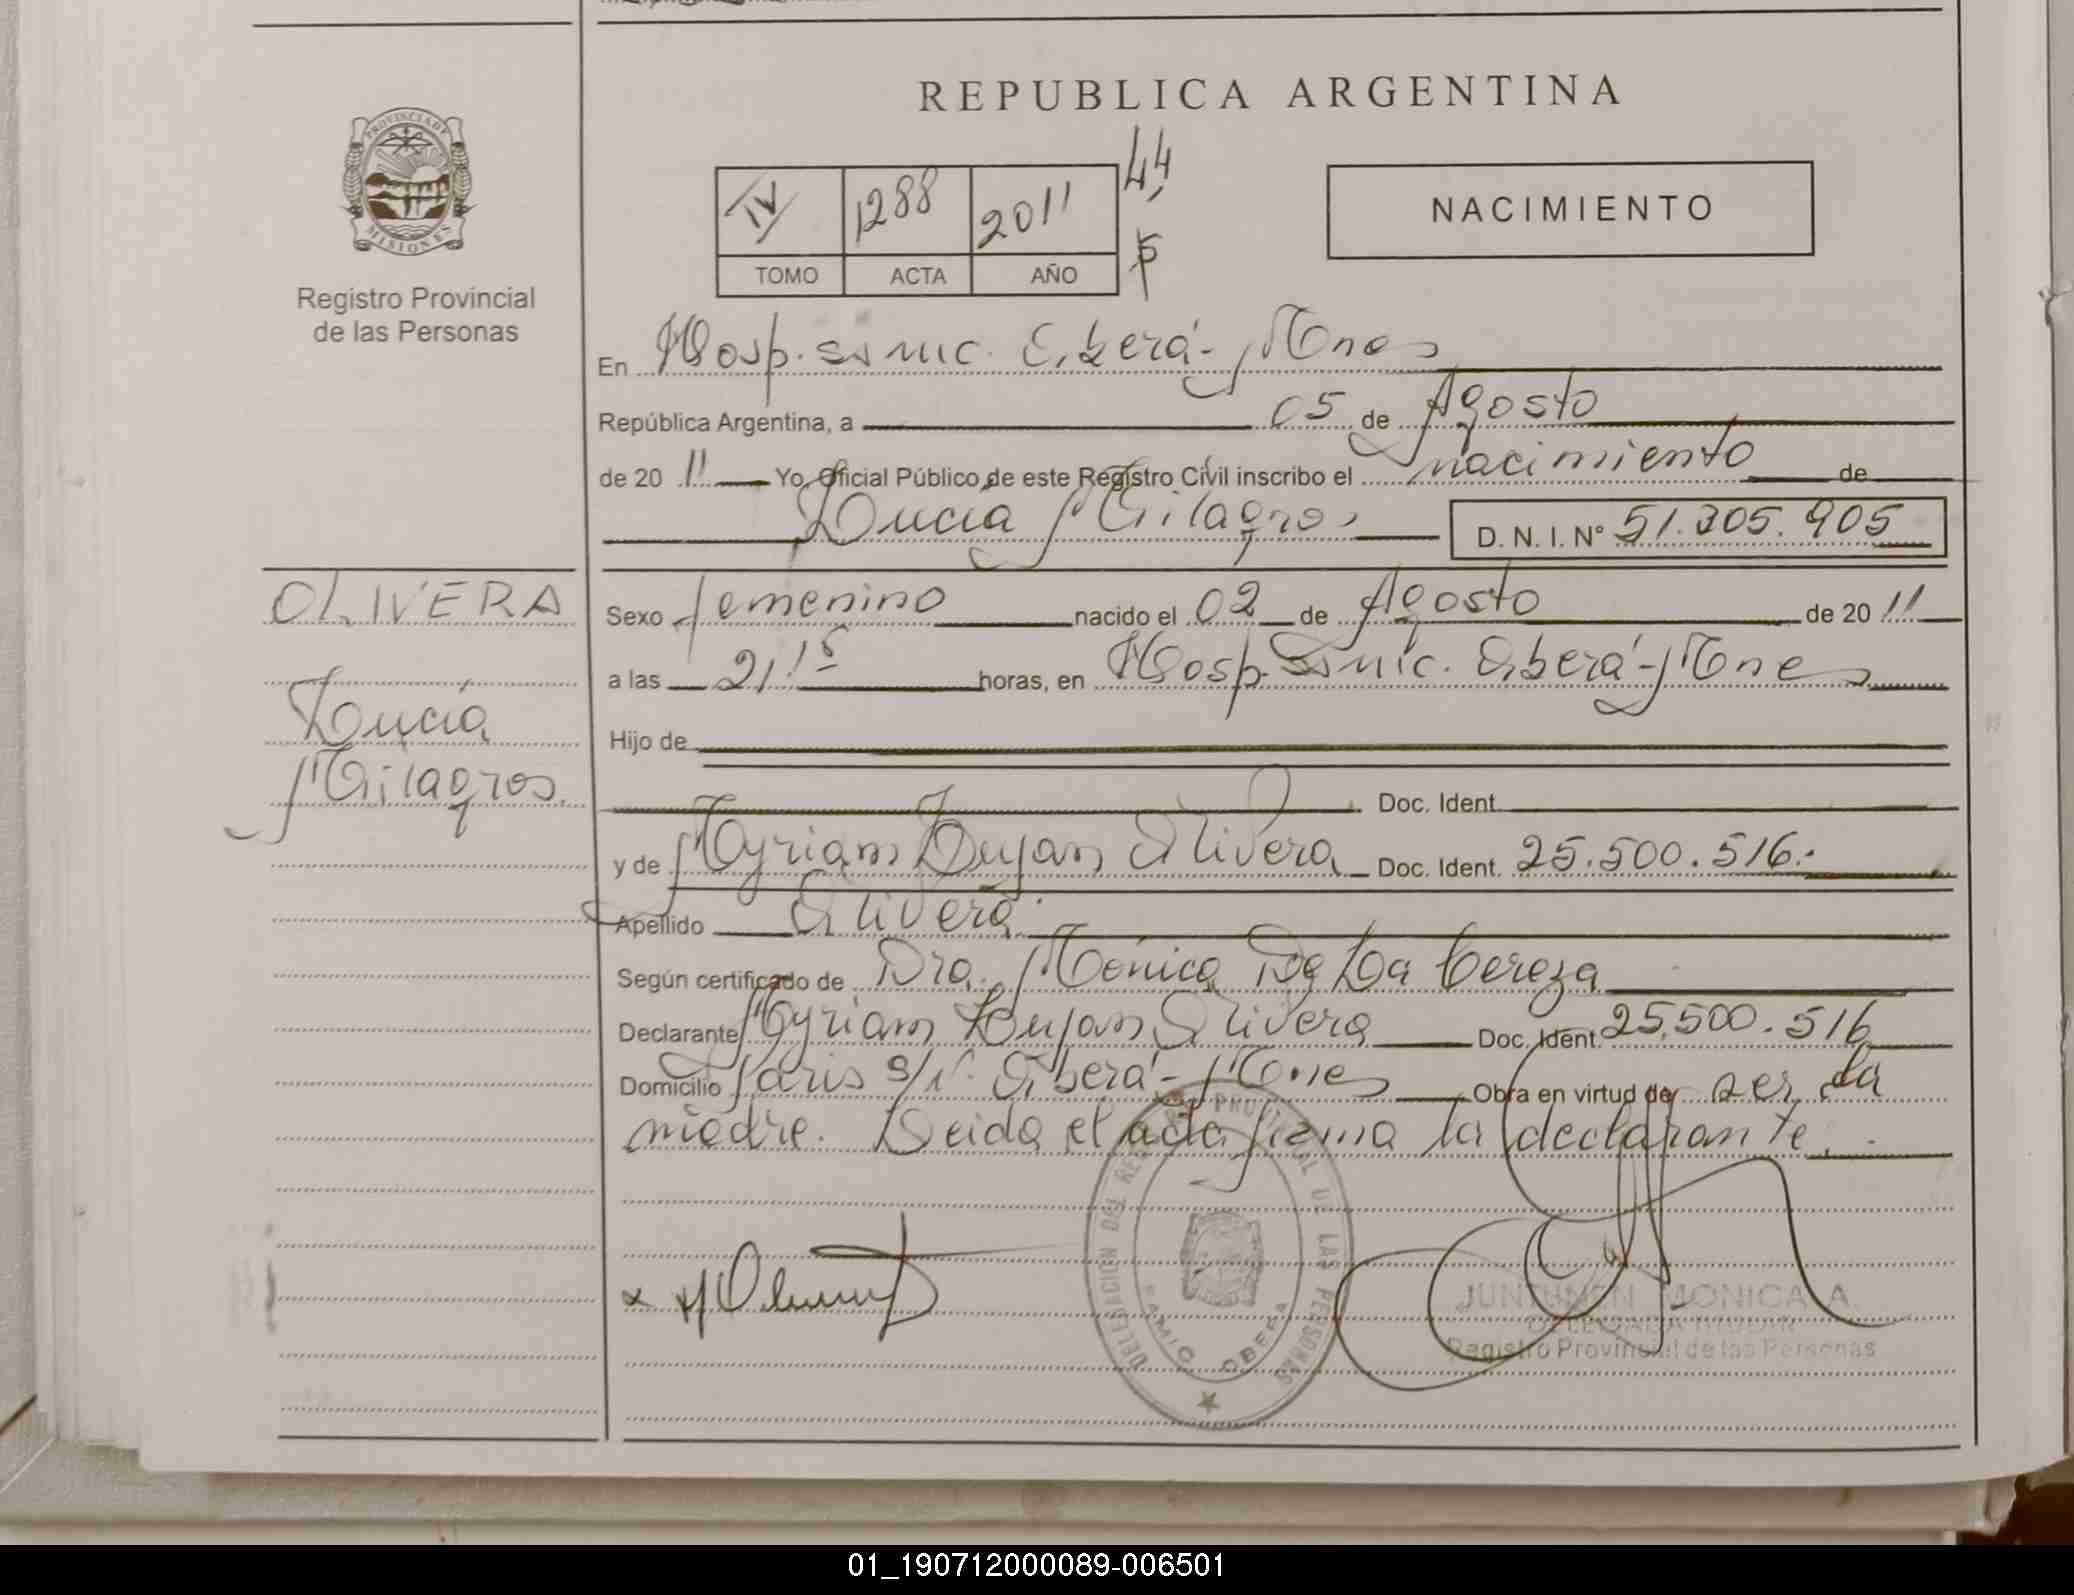 REPUBLICA ARGENTINA
PROVINCIA DE
MISIONES
Registro Provincial
de las Personas
IV 1288 2011 44
TOMO ACTA AÑO
NACIMIENTO
En Hosp. Oberá - Mnes
República Argentina, a 05 de Agosto
de 20 11 Yo, Oficial Público de este Registro Civil inscribo el nacimiento de
Lucía Milagros D. N. I. Nº 51.305.905
OLIVERA
Lucía
Milagros.
Sexo femenino nacido el 02 de Agosto de 20 11
a las 21,15 horas, en Hosp. Oberá - Mnes
Hijo de
Doc. Ident.
y de Myriam Lujan Olivera Doc. Ident. 25.500.516.-
Apellido Olivera
Según certificado de Dra. Mónica De La Cereza
Declarante Myriam Lujan Olivera Doc. Ident. 25.500.516
Domicilio Paris s/n. Oberá - Mnes Obra en virtud de ser la
madre. Leida el acta firma la declarante.
DELEGACION DEL REGISTRO PROVINCIAL DE LAS PERSONAS
OBERA
MONICA A.
Registro Provincial de las Personas
01_190712000089-006501